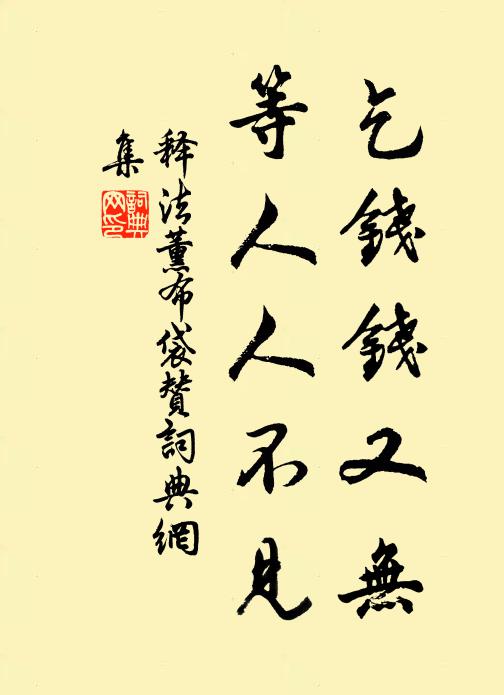 乞錢錢又無
等人人不見
释法薰布袋贊詞典網
集
詞典
网印